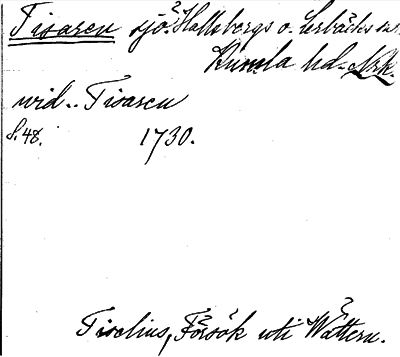 Tisaren sjö. Hallsbergs o. Lerbäcks sn.
Kumla hd. Nrk.
wid.. Tisaren
S. 48. 1730.
Tiselius, Försök uti Wättern.